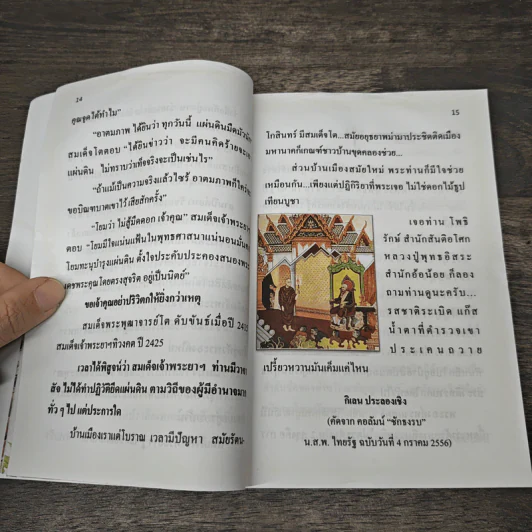 24
คุณขุดได้ทำไม"
"อาตมภาพ ได้ยินว่า ทุกวันนี้ แผ่นดินมืดมัวนัก
สมเด็จโตตอบ "ได้ยินข่าวว่า จะมีคนคิดร้ายจะเอา
แผ่นดิน ไม่ทราบว่าเท็จจริงจะเป็นเช่นไร"
"ถ้าแม้เป็นความจริงแล้วไซร้ อาตมภาพก็ใคร่
ขอบิณฑบาตเขาไว้เสียสักครั้ง"
"โยมว่า ไม่สู้มืดดอก เจ้าคุณ" สมเด็จเจ้าพระยา
ตอบ "โยมมีใจแน่นแฟ้นในพุทธศาสนาแน่นอนมั่นคง
โยมทะนุบำรุงแผ่นดิน ตั้งใจประคับประคองสนอง
เดชพระคุณโดยตรงสุจริต อยู่เป็นนิตย์"
ขอเจ้าคุณอย่าปริวิตกให้ยิ่งกว่าเหตุ
สมเด็จพระพุฒาจารย์โต ดับขันธ์เมื่อปี
สมเด็จเจ้าพระยาฯ ทิวงคต ปี 2425
เวลาได้พิสูจน์ว่า สมเด็จเจ้าพระยาฯ ท่านมีวาทะ
สัจ ไม่ได้ทำปฏิวัติยึดแผ่นดิน ตามวิถีของผู้มีอำนาจมาก
ทั่ว ๆ ไป แต่ประการใด
บ้านเมืองเราแต่โบราณ เวลามีปัญหา สมัยรัตน-
15
โกสินทร์ มีสมเด็จโต...สมัยอยุธยาพม่ามาประชิดติดเมือง
มหานาคก็เกณฑ์ชาวบ้านขุดคลองช่วย...
ส่วนบ้านเมืองสมัยใหม่ พระท่านก็มีใจช่วย
เหมือนกัน...เพียงแต่ปฏิกิริยาที่พระเจอ ไม่ใช่ดอกไม้ธูป
เทียนบูชา
เจอท่าน โพธิ
รักษ์ สำนักสันติอโศก
หลวงปู่พุทธอิสระ
สำนักอ้อน้อย ก็ลอง
ถามท่านดูนะครับ...
รสชาติระเบิด แก๊ส
น้ำตาที่ตำรวจเขา
ประเคนถวาย
เปรี้ยวหวานมันเค็มแค่ไหน
กิเลน ประลองเชิง
(คัดจาก คอลัมน์ "ชักธงรบ"
น.ส.พ. ไทยรัฐ ฉบับวันที่ 4 กรกาคม 2556)